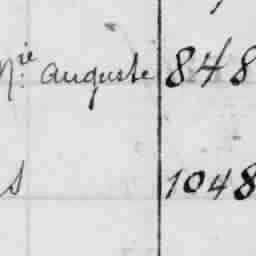 Mie auguste 848
s 1048